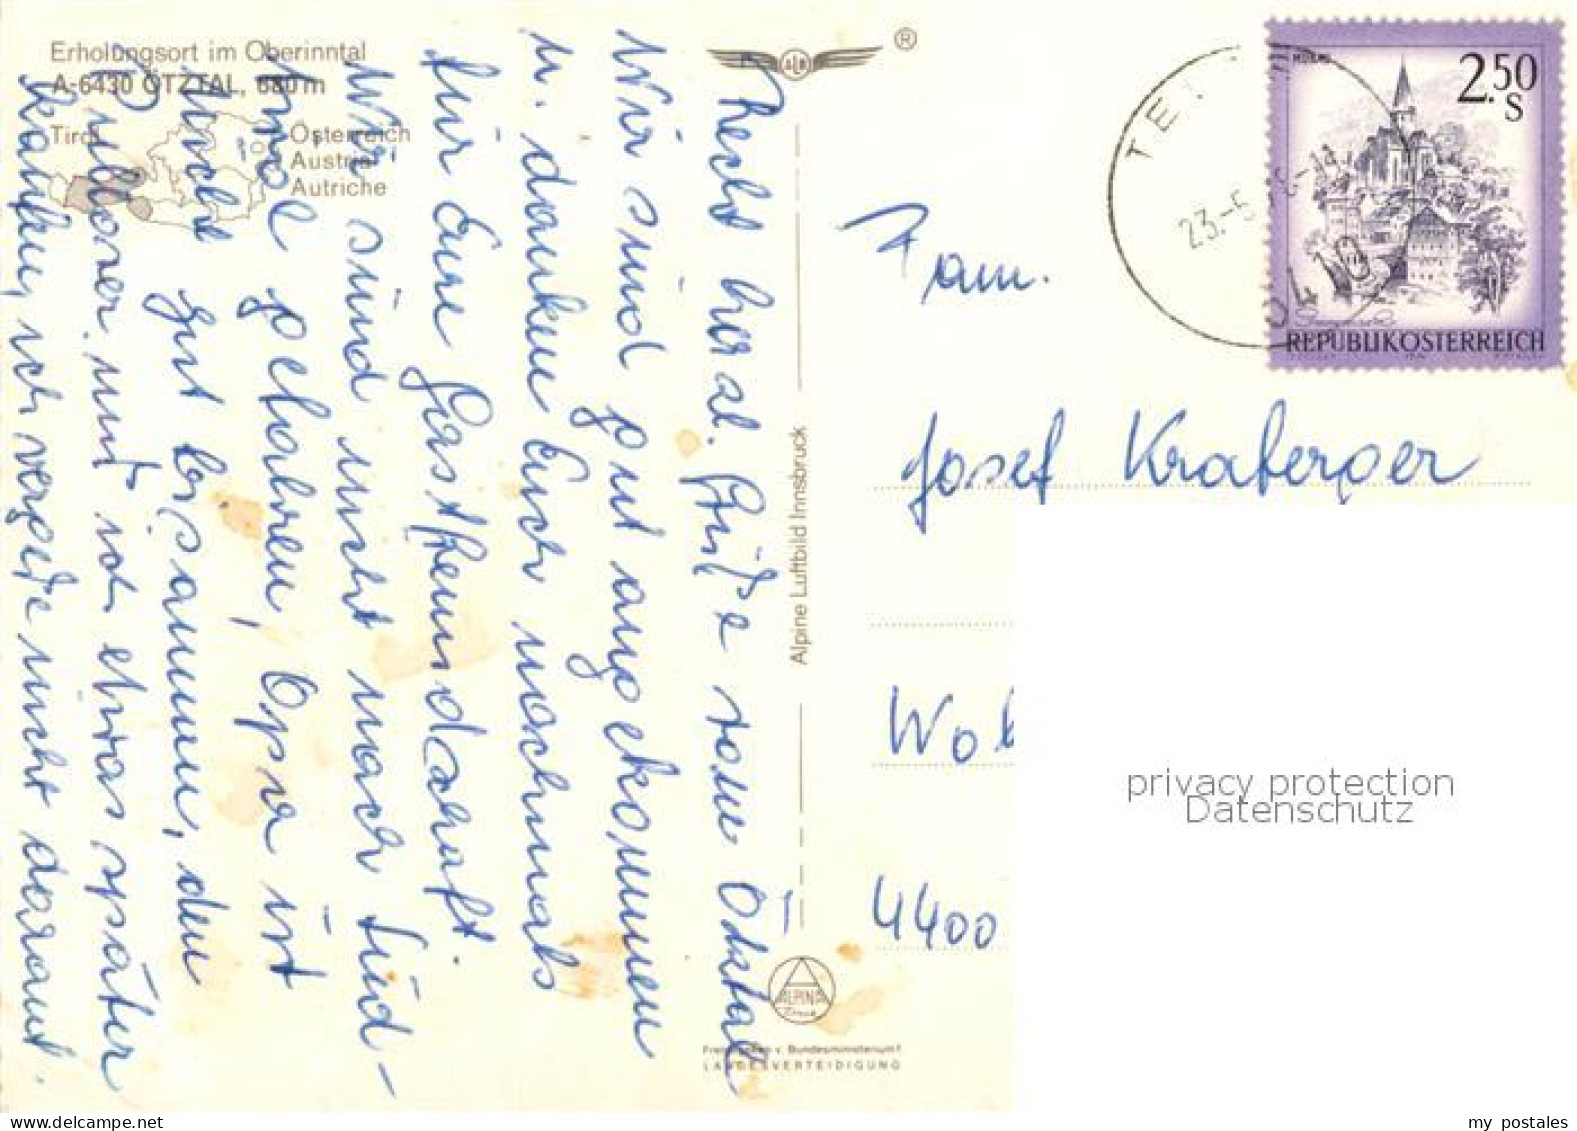 Erholungsort im Oberinntal
A-6430 ÖTZTAL, 680 m
Tirol
Österreich
Austria
Autriche
®
Recht herzl. Grüße vom Ötztal
Wir sind gut angekommen
u. danken Euch nochmals
für Eure Gastfreundschaft.
Wir sind nicht nach Süd-
tirol gefahren, Opa ist
nicht gut beisammen, den
und ich etwas später
ich vergeße nicht darauf.
Alpine Luftbild Innsbruck
ALPINA
Druck
Freigegeben v. Bundesministerium f.
LANDESVERTEIDIGUNG
23.-5
MURAU
2.50
S
REPUBLIK ÖSTERREICH
Fam.
Josef Kraberger
Wo
4400
privacy protection
Datenschutz
my postales